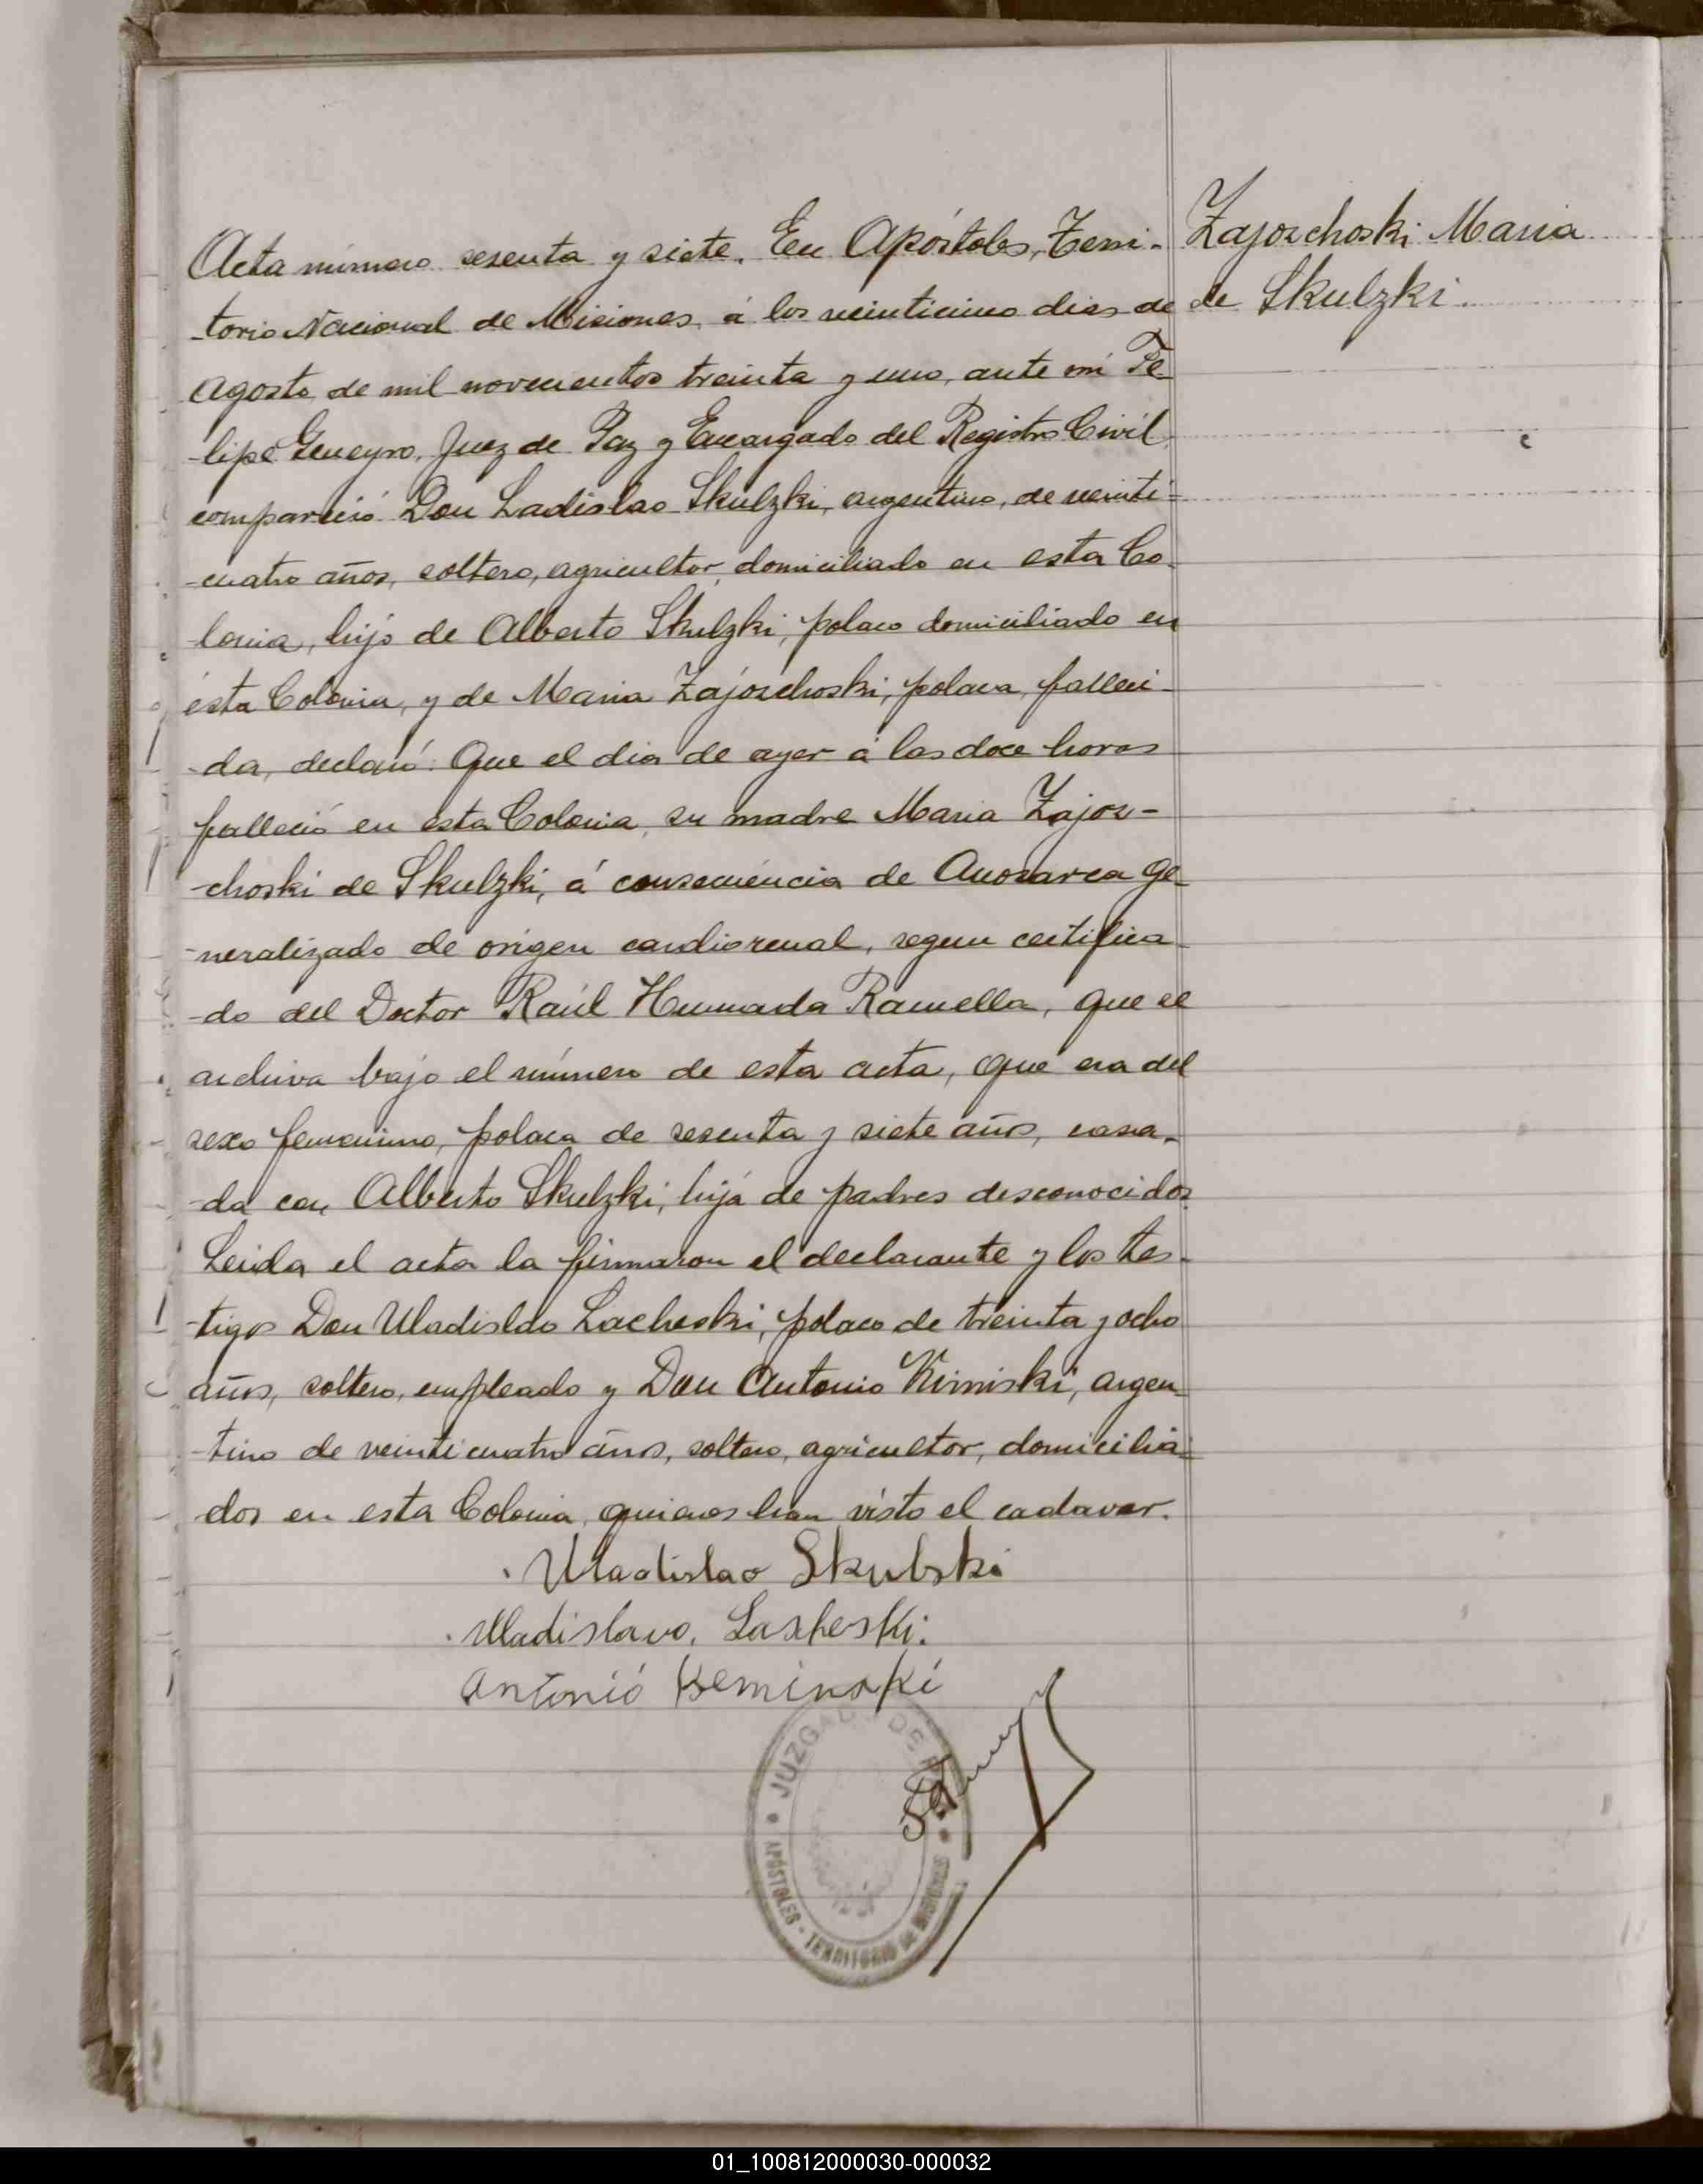 Acta número sesenta y siete. En Apóstoles, Terri-
-torio Nacional de Misiones, á los veinticinco dias de
Agosto de mil novecientos treinta y uno, ante mí Fe-
-lipe Geneyro, Juez de Paz y Encargado del Registro Civil,
compareció Don Ladislao Skulzki, argentino, de veinti-
-cuatro años, soltero, agricultor, domiciliado en esta Co-
lonia, hijo de Alberto Skulzki, polaco domiciliado en
ésta Colonia, y de Maria Zajoschoski, polaca, falleci-
-da, declaró: Que el dia de ayer á las doce horas
falleció en ésta Colonia, su madre Maria Zajos-
-choski de Skulzki, á consecuéncia de Anasarca ge-
-neralizado de origen cardiorenal, segun certifica-
-do del Doctor Raúl Humada Ramella, que se
archiva bajo el número de esta acta, que era del
sexo femenino, polaca de sesenta y siete años, casa-
-da con Alberto Skulzki, hija de padres desconocidos.
Leida el acta la firmaron el declarante y los tes-
-tigos Don Uladisldo Lacheski, polaco de treinta y ocho
años, soltero, empleado y Don Antonio Kiminski, argen-
-tino de veinticuatro años, soltero, agricultor, domicilia-
dos en esta Colonia, quienes han visto el cadaver.
Uladislao Skubski
Uladislavo. Lascheski.
Antonió Keminski
JUZGADO DE PAZ
APÓSTOLES - TERRITORIO DE MISIONES
Zajoschoski Maria
de Skulzki
01_100812000030-000032